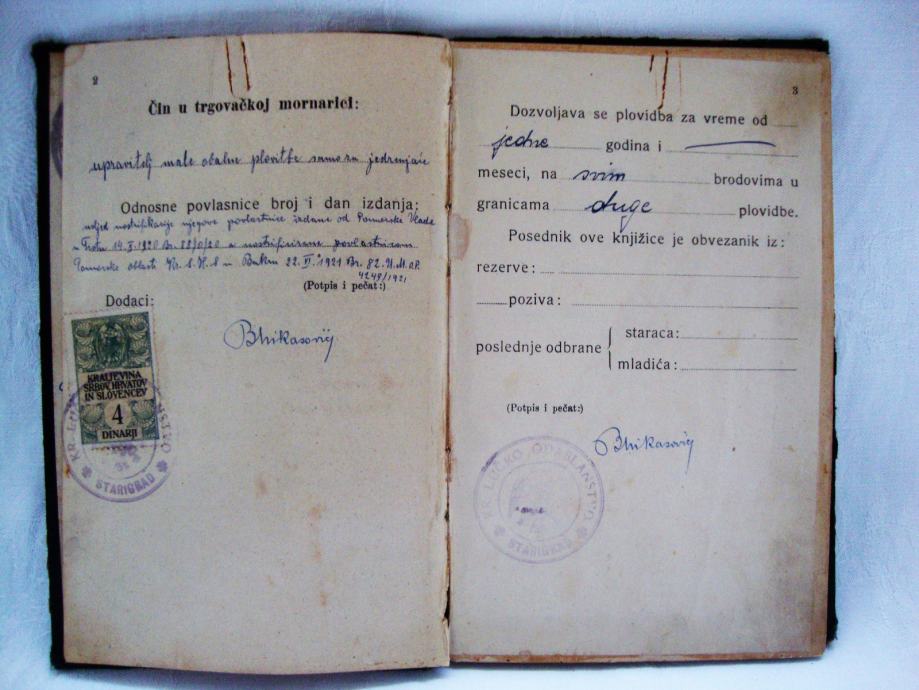 2
Čin u trgovačkoj mornarici:
upravitelj male obalne plovitbe samo za jedrenjače
Odnosne povlasnice broj i dan izdanja:
uslied nostrifikacije njegove povlastnice izdane od Pomorske Vlade
u Trstu 14. 1920 Br. a nostrificirane povlastnicom
Pomorske oblasti Kr. S.H.S u Bakru 22. 1921 Br. 82.
4248/1921
(Potpis i pečat:)
Dodaci:
KRALJEVINA
SRBOV, HRVATOV
IN SLOVENCEV
4
DINARJI
STARIGRAD
3
Dozvoljava se plovidba za vreme od
jedne godina i
meseci, na svim brodovima u
granicama duge plovidbe.
Posednik ove knjižice je obvezanik iz:
rezerve:
poziva:
poslednje odbrane
staraca:
mladića:
(Potpis i pečat:)
KR. LUČKO ODASLANSTVO
STARIGRAD